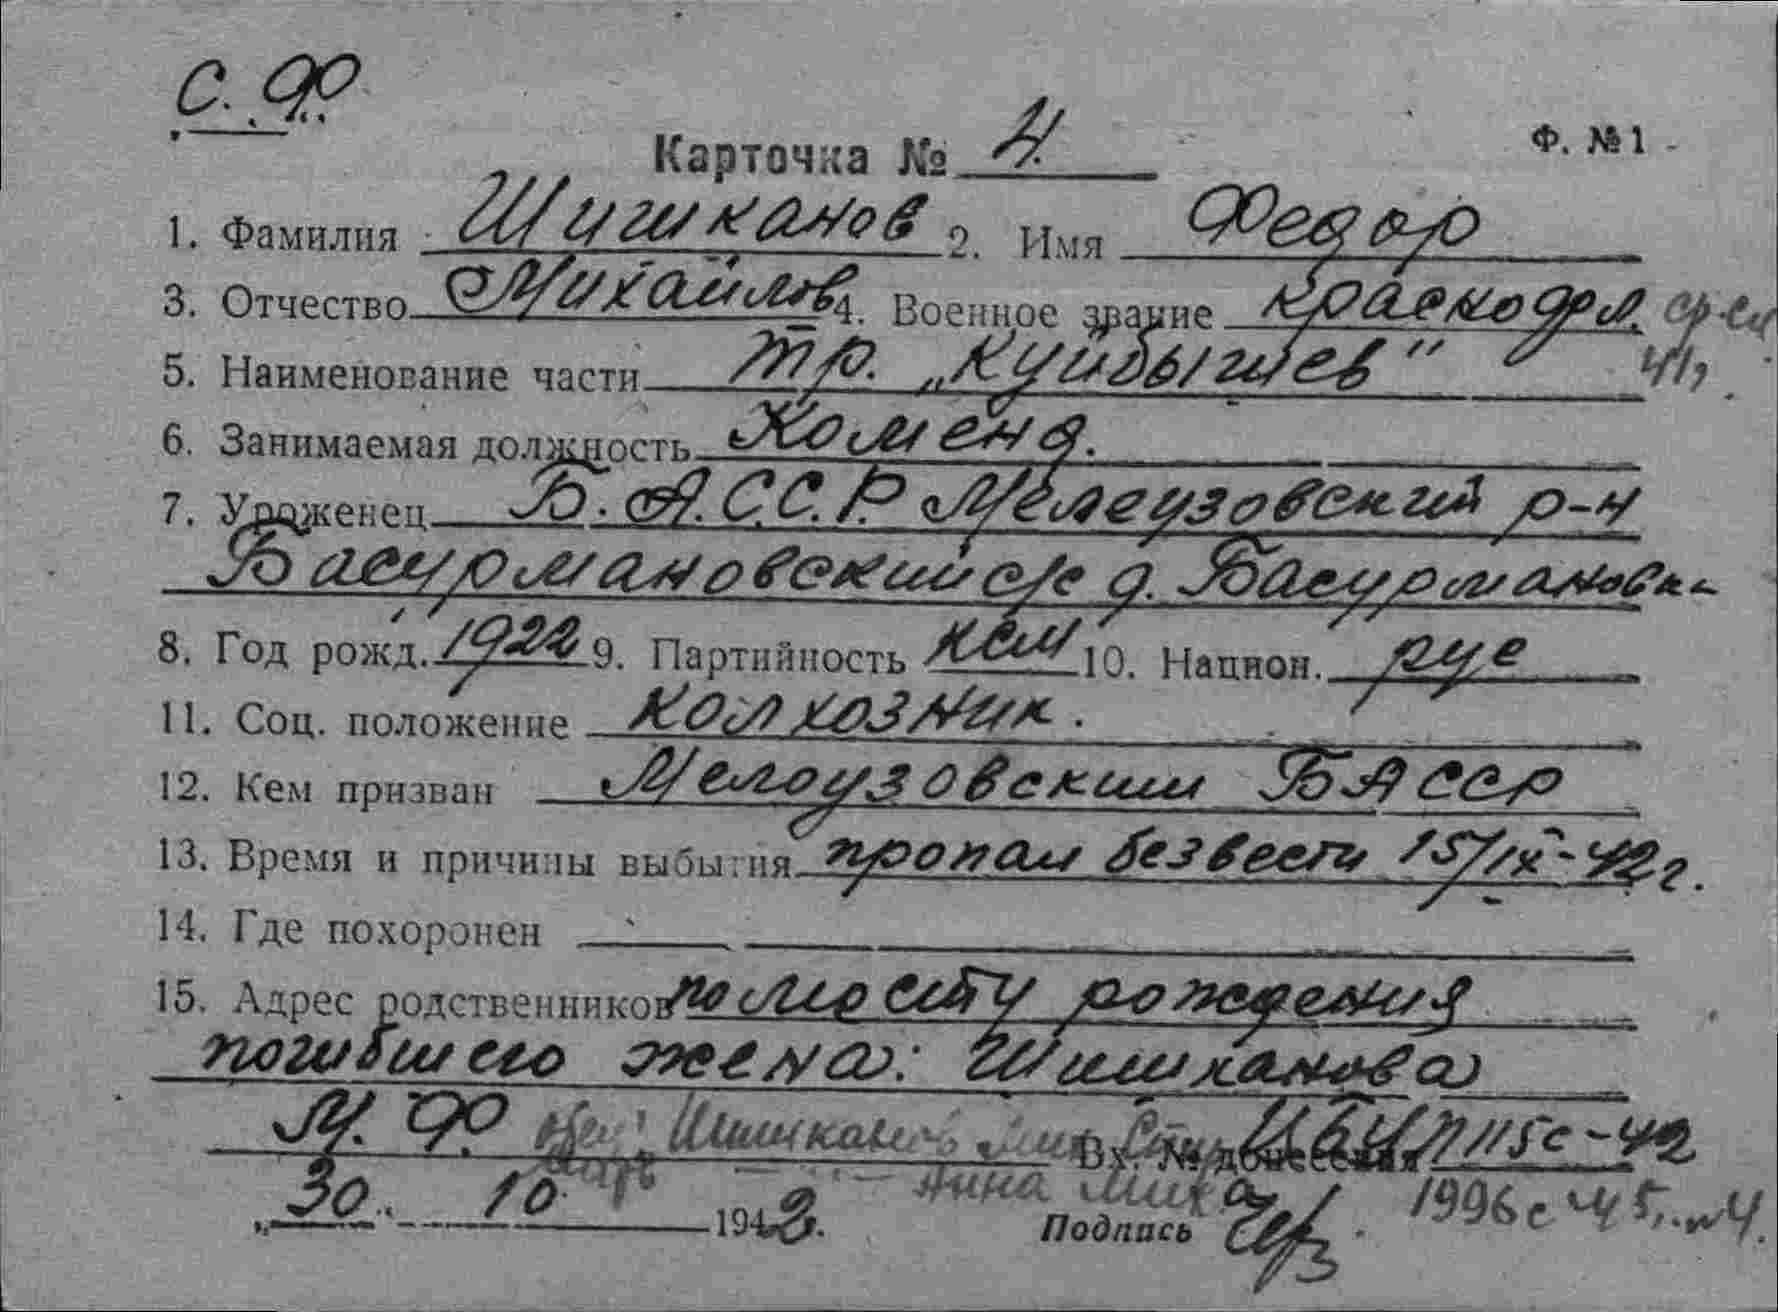 С. Ф.
Карточка № 4. Ф. №1
1. Фамилия Шишканов 2. Имя Федор
3. Отчество Михайлов 4. Военное звание краснофл. ср.сл
5. Наименование части тр. „Куйбышев" 41,
6. Занимаемая должность Коменд.
7. Уроженец Б.А.С.С.Р. Мелеузовский р-н
Басурмановский с/с д. Басурмановка
8. Год рожд. 1922 9. Партийность ксм 10. Национ. рус
11. Соц. положение колхозник.
12. Кем призван Мелоузовским БАССР
13. Время и причины выбытия пропал без вести 15/IX-42г.
14. Где похоронен
15. Адрес родственников по месту рождения
погибшего жена: Шишканова
М. Ф. отец: Шишканов Мих. Вх. № донесения 115с-42
30. 10 1942. мать — " — Анна Мих
Подпись 1996с 45,. №4.